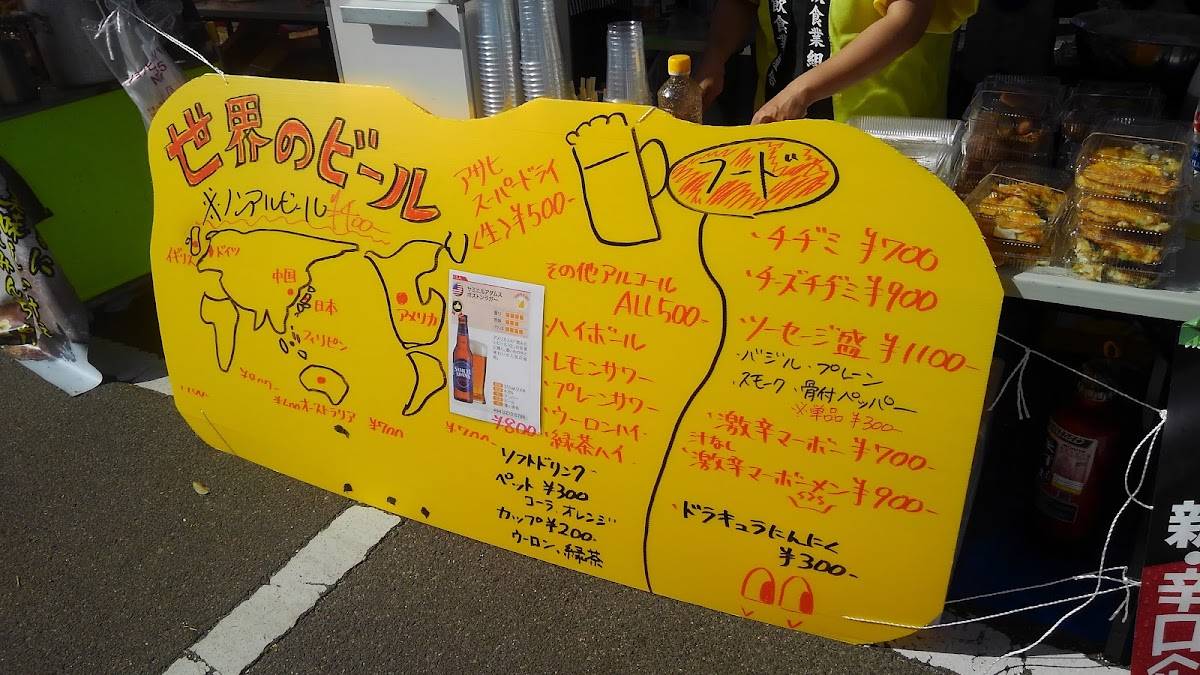 世界のビール
※ノンアルビール¥400-
イギリス
ドイツ
中国
日本
フィリピン
アメリカ
オーストラリア
¥700
¥700-
¥800
アサヒ
スーパードライ
<生>¥500-
サミエルアダムス
ボストンラガー
その他アルコール
ALL500-
・ハイボール
・レモンサワー
・プレーンサワー
・ウーロンハイ
・緑茶ハイ
ソフトドリンク
ペット ¥300
コーラ、オレンジ
カップ¥200-
ウーロン、緑茶
フード
・チヂミ ¥700
・チーズチヂミ¥900
・ソーセージ盛 ¥1100-
・バジル・プレーン
スモーク、骨付ペッパー
※単品¥300-
・激辛マーボー¥700-
汁なし
・激辛マーボーメン¥900-
・ドラキュラにんにく
¥300-
飲食業組
新・辛口